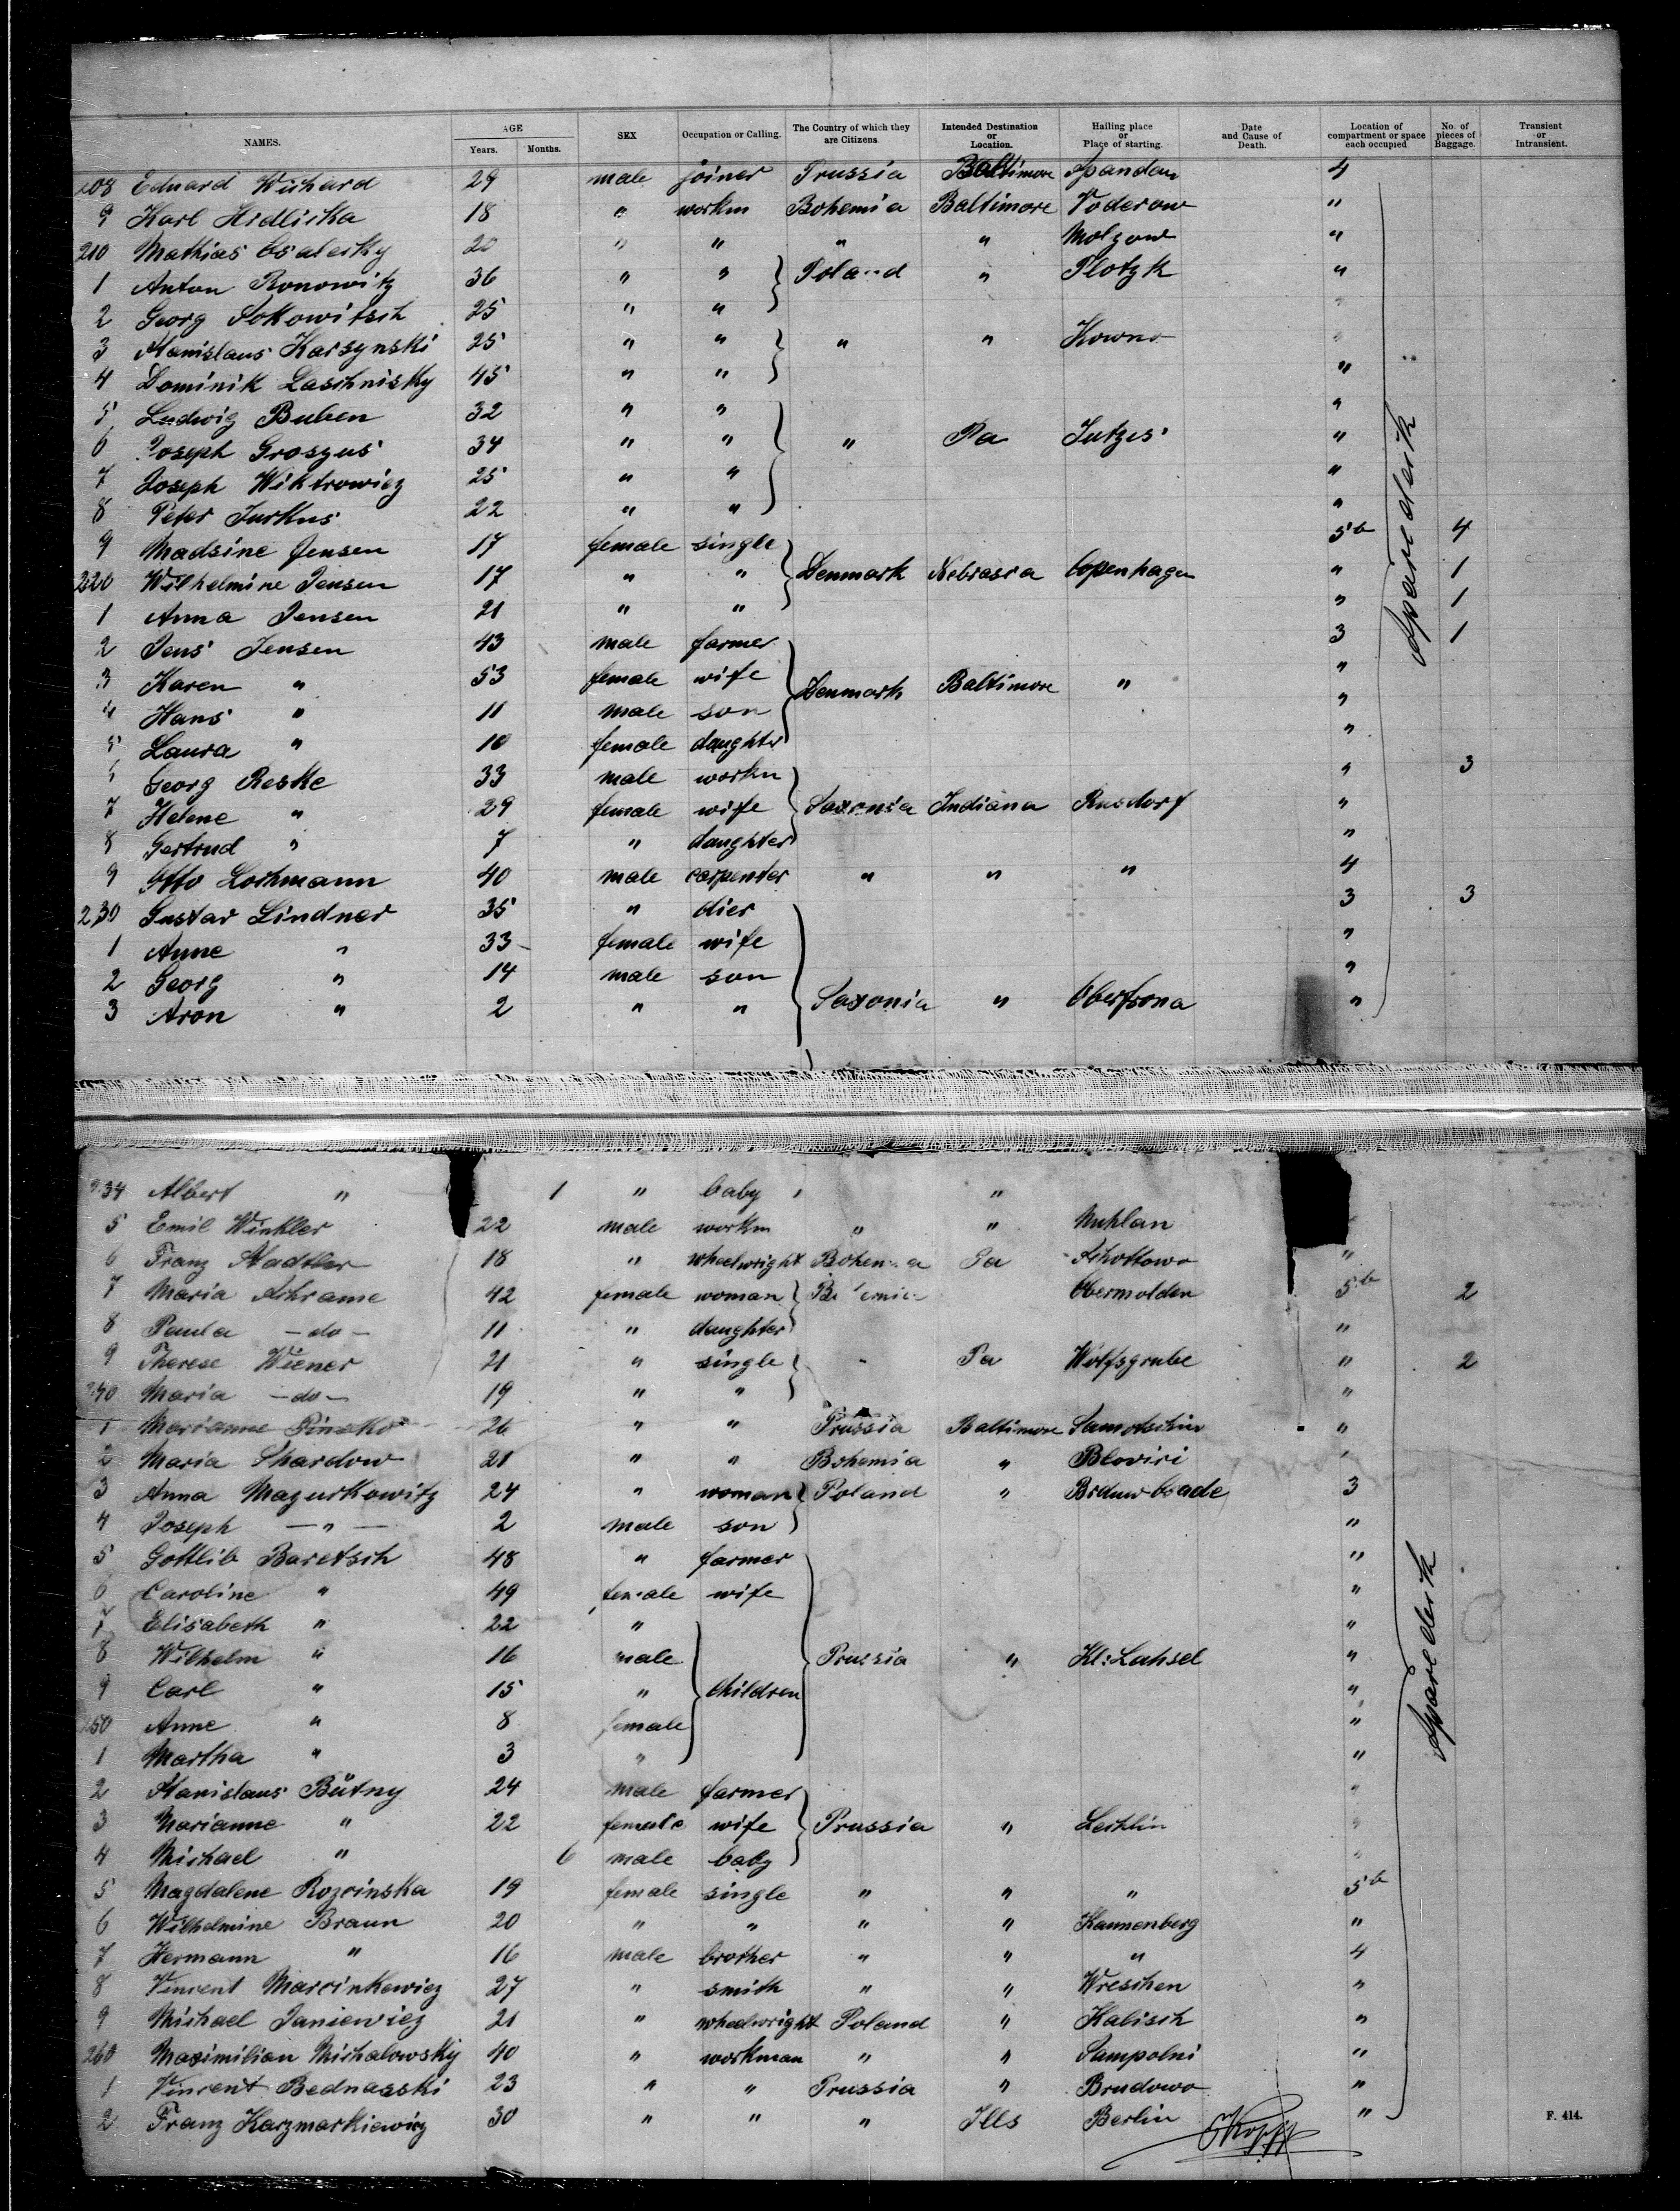 NAMES. AGE Years. Months. SEX Occupation or Calling. The Country of which they are Citizens. Intended Destination or Location. Hailing place or Place of starting. Date and Cause of Death. Location of compartment or space each occupied No. of pieces of Baggage. Transient or Intransient.
208 Eduard Wichard 29 male joiner Prussia Baltimore Spandau 4
9 Karl Hidlicka 18 " workm Bohemia Baltimore Voderow "
210 Mathias Csalecky 20 " " " " Molzow "
1 Anton Ronowitz 36 " " Poland " Plotzk "
2 Georg Sokowitsch 25 " " "
3 Stanislaus Karsynski 25 " " " " Kowno "
4 Dominik Laschnisky 45 " " "
5 Ludwig Buben 32 " " "
6 Joseph Groszus 34 " " " Pa Jutzis "
7 Joseph Wiktrowicz 25 " " "
8 Peter Jurkus 22 " " "
9 Madsine Jensen 17 female single 5b 4
220 Wilhelmine Jensen 17 " " Denmark Nebrasca Copenhagen " 1
1 Anna Jensen 21 " " " 1
2 Jens Jensen 43 male farmer 3 1
3 Karen " 53 female wife Denmark Baltimore " "
4 Hans " 11 male son "
5 Laura " 10 female daughter "
6 Georg Reske 33 male workm " 3
7 Helene " 29 female wife Saxonia Indiana Rusdorf "
8 Gertrud " 7 " daughter "
9 Otto Lochmann 40 male carpenter " " " 4
230 Gustav Lindner 35 " dier 3 3
1 Anne " 33 female wife "
2 Georg " 14 male son "
3 Aron " 2 " " Saxonia " Oberfrona "
Spardeck
234 Albert " 1 " baby "
5 Emil Winkler 22 male workm " " Muhlan
6 Franz Stadtler 18 " wheelwright Bohemia Pa Schottowo "
7 Maria Schrame 42 female woman Bohemia Obermolden 5b 2
8 Paula -do- 11 " daughter "
9 Therese Wiener 21 " single " Pa Wolfsgrube " 2
240 Maria -do- 19 " " "
1 Marianne Pinsko 26 " " Prussia Baltimore Samotschin "
2 Maria Shardow 21 " " Bohemia " Bloviri "
3 Anna Mazurkowitz 24 " woman Poland " 3
4 Joseph " 2 male son "
5 Gottlib Baretsch 48 " farmer "
6 Caroline " 49 female wife "
7 Elisabeth " 22 " "
8 Wilhelm " 16 male Prussia " Kl: Luhsel "
9 Carl " 15 " Children "
250 Anne " 8 female "
1 Martha " 3 " "
2 Stanislaus Bütny 24 male farmer "
3 Marianne " 22 female wife Prussia " Lechlin "
4 Michael " 6 male baby "
5 Magdalene Rozcinska 19 female single " " " 5b
6 Wilhelmine Braun 20 " " " " Kannenberg "
7 Hermann " 16 male brother " " " 4
8 Vincent Marcinkewicz 27 " smith " " Wreschen "
9 Michael Janiewicz 21 " wheelwright Poland " Kalisch "
260 Maximilian Michalowsky 40 " workman " " Sampolni "
1 Vincent Bednasski 23 " " Prussia " Brudowo "
2 Franz Karzmarkiewicz 30 " " " Ills Berlin "
Spardeck
F. 414.